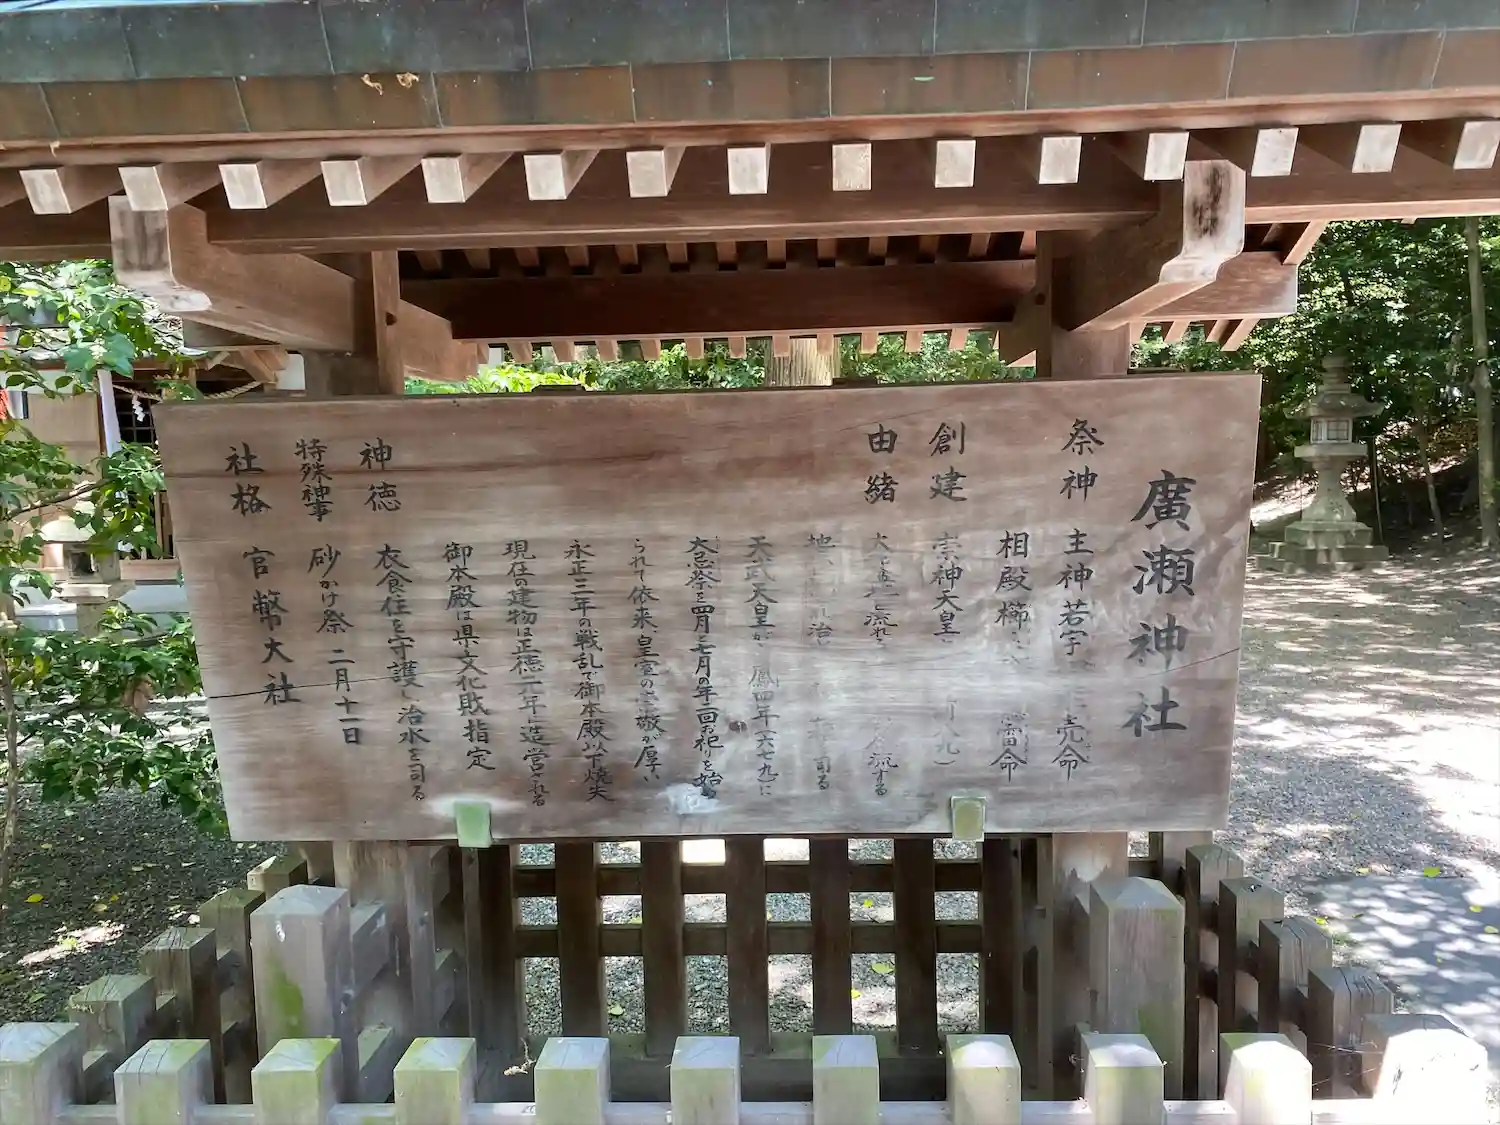 廣瀬神社
祭神 主神若宇 売命
相殿櫛 雷命
創建 崇神天皇 八九)
由緒 大 流れ 流する
地 治 司る
天武天皇が 鳳四年(六七九)に
大忌祭を四月と七月の年二回お祀りを始め
られて依来、皇室の 敬が厚い
永正三年の戦乱で御本殿以下焼失
現在の建物は正徳元年に造営される
御本殿は県文化財指定
神徳 衣食住を守護し治水を司る
特殊神事 砂かけ祭 二月十一日
社格 官幣大社